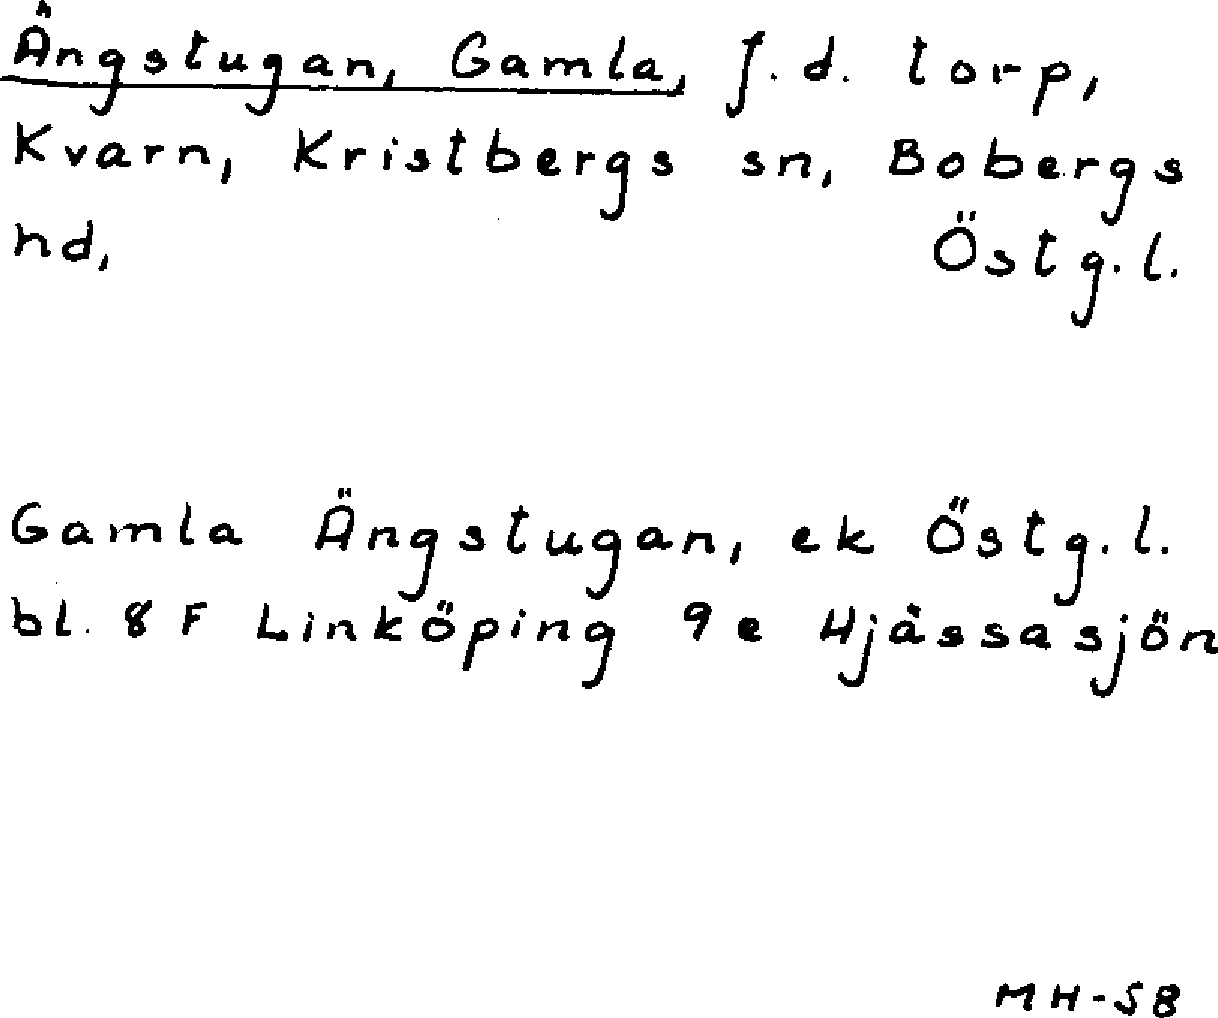 Ängstugan, Gamla, f.d. torp,
Kvarn, Kristbergs sn, Bobergs
hd, Östg.l.
Gamla Ängstugan, ek Östg.l.
bl. 8 F Linköping 9e Hjässasjön
MH-58